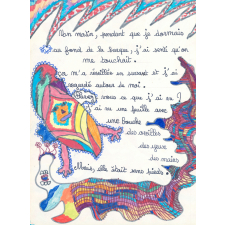 Mon matin, pendant que je dormais
au fond de la barque, j'ai senti qu'on
me touchait.
Ça m'a réveillée en sursaut et j'ai
regardé autour de moi.
Savez vous ce que j'ai vu ?
J'ai vu une feuille avec
une bouche
des oreilles
des yeux
des mains
Mais, elle était sans pieds.